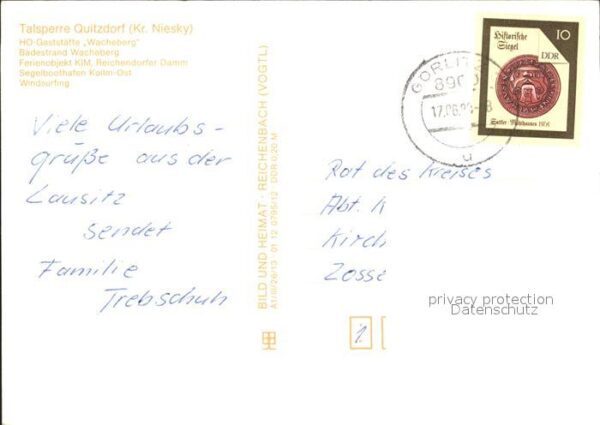 Talsperre Quitzdorf (Kr. Niesky)
HO-Gaststätte „Wacheberg"
Badestrand Wacheberg
Ferienobjekt KIM, Reichendorfer Damm
Segelboothafen Kollm-Ost
Windsurfing
Viele Urlaubs-
grüße aus der
Lausitz
sendet
Familie
Trebschuh
BILD UND HEIMAT · REICHENBACH (VOGTL)
A1/III/26/13 · 01 12 0795/12 · DDR 0,20 M
Historische
Siegel
10
DDR
Sattler · Mühlhausen 1608
GÖRLITZ
u
Rat des Kreises
Abt. K
Kirch
Zosse
privacy protection
Datenschutz
1